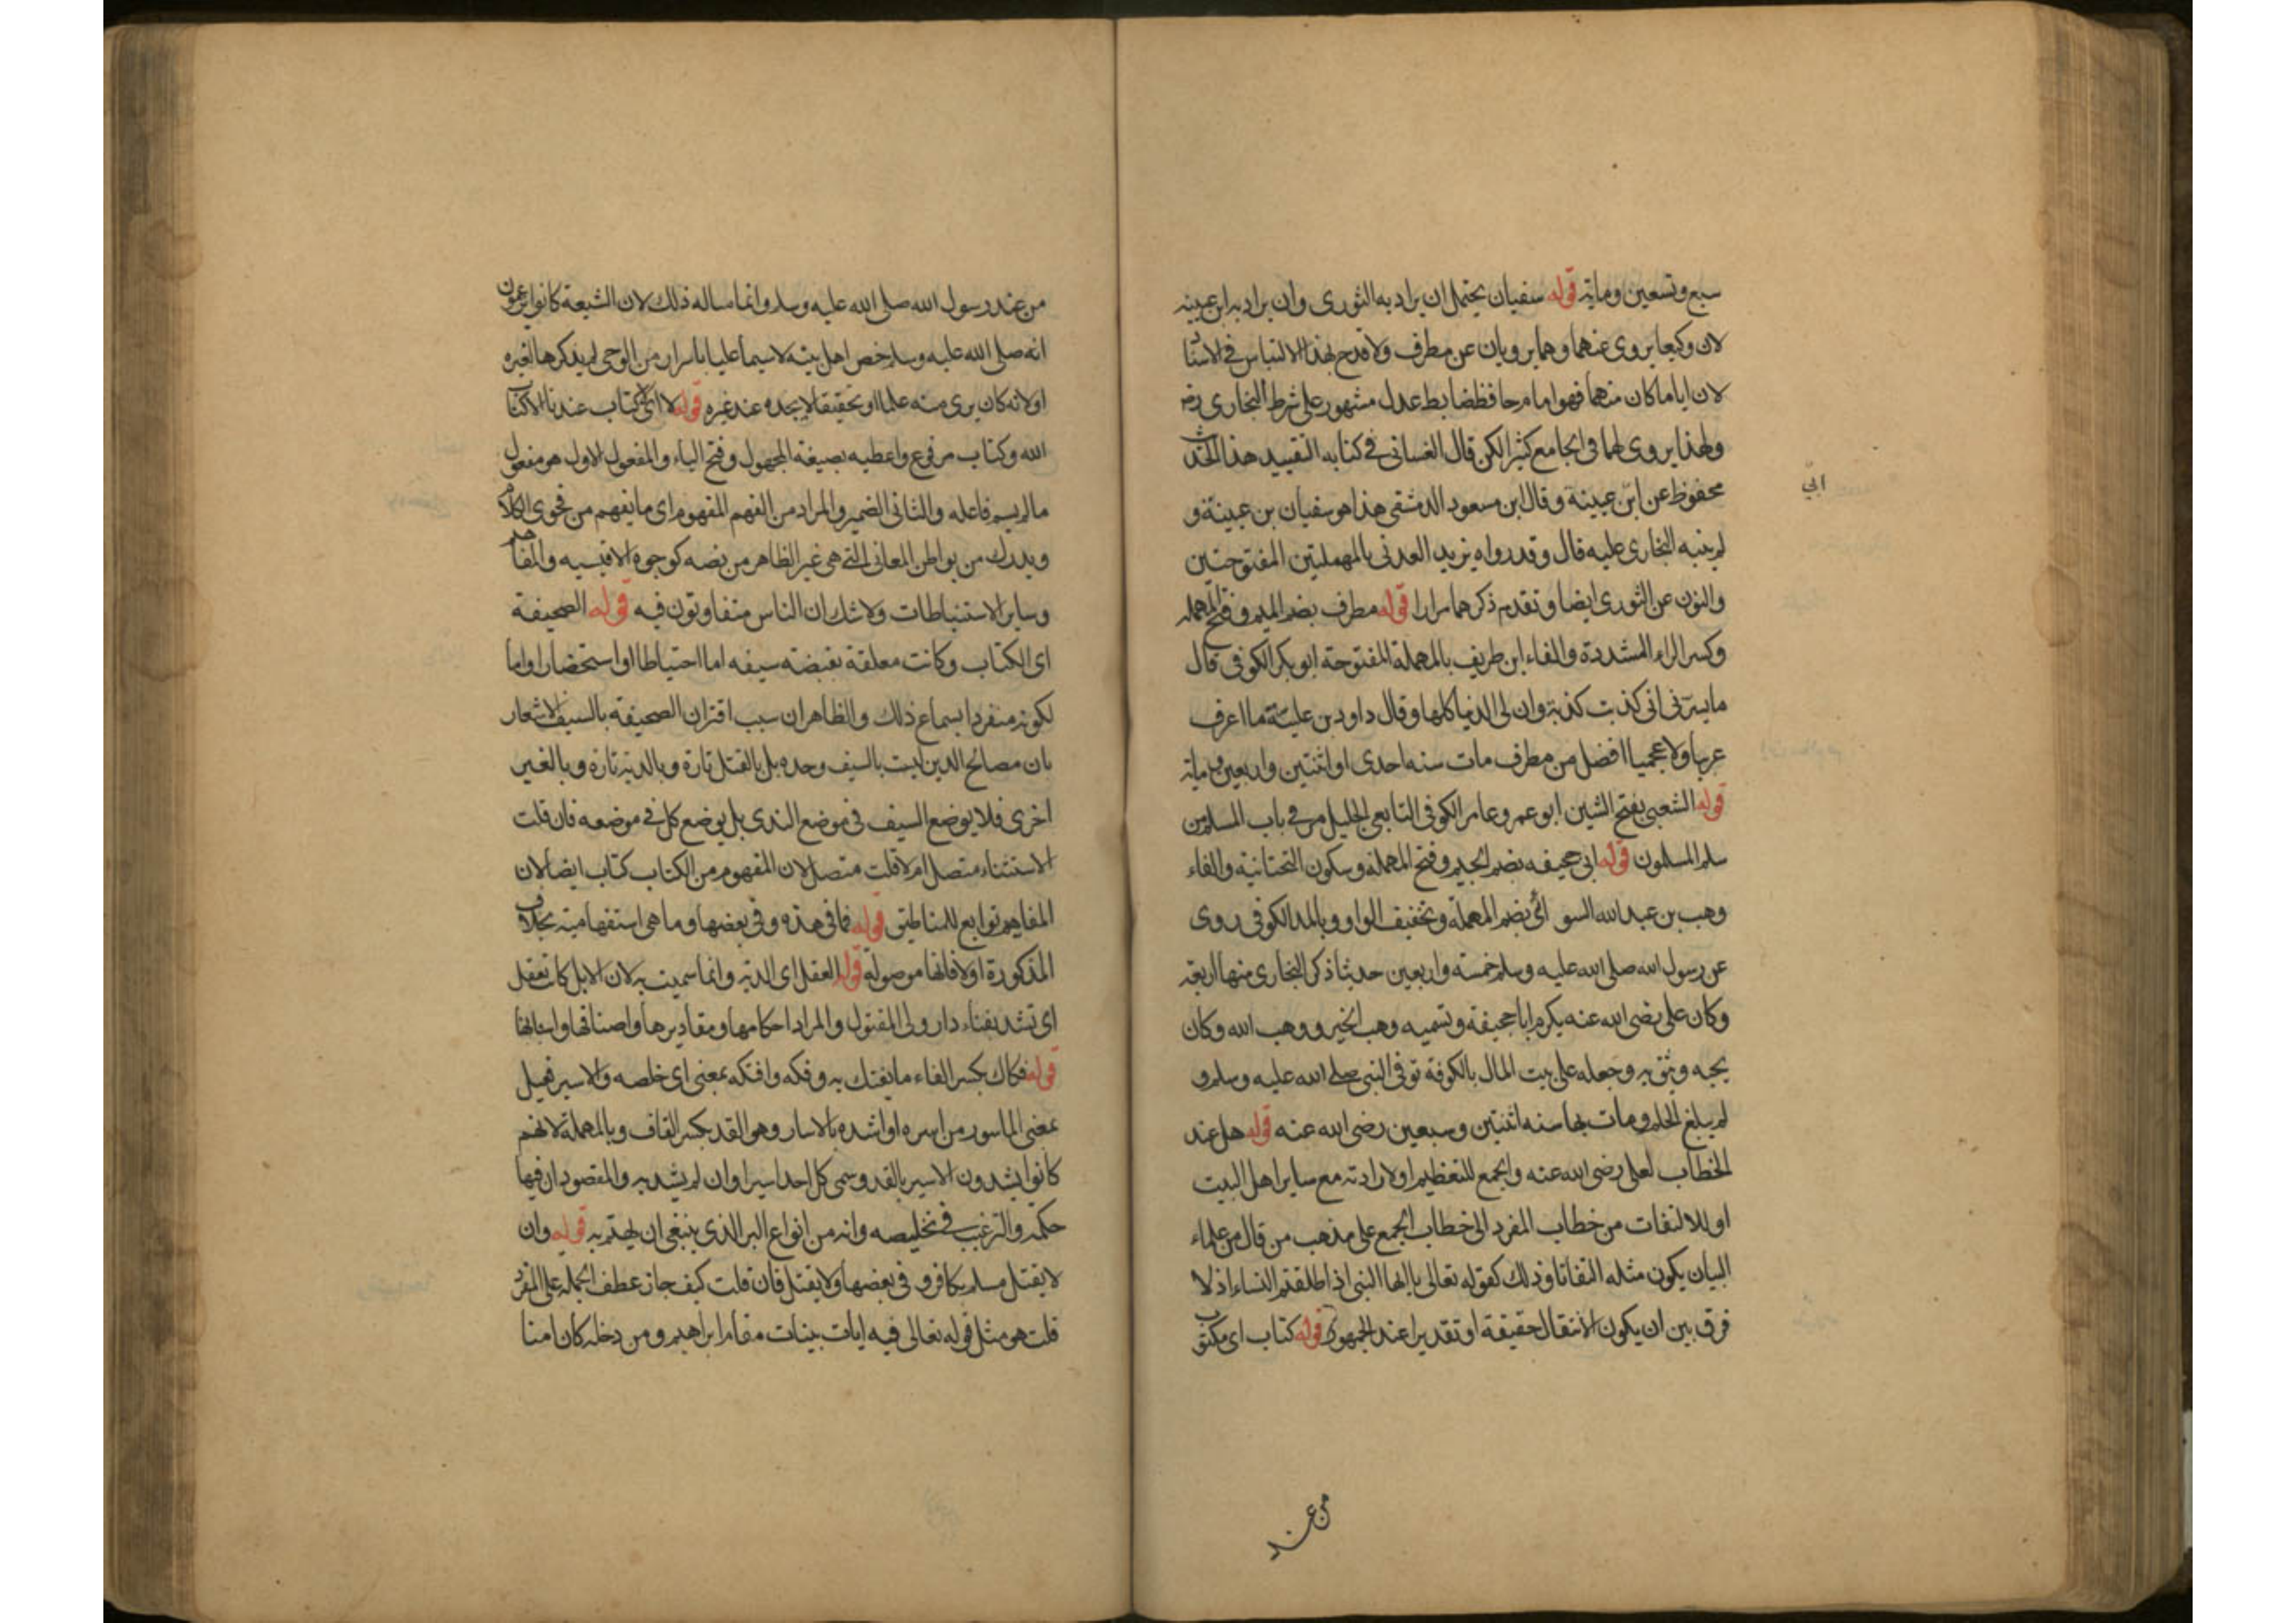 سبع وتسعين وماية قوله سفيان يحتمل ان يراد به الثوري وان يراد به ابن عيينه
لان وكيعا يروي عنهما وهما يرويان عن مطرف ولا قدح بهذا الالتباس في الاسناد
لان اياما كان منهما فهو امام حافظ ضابط عدل مشهور على شرط البخاري
ولهذا يروي لهما في الجامع كثيرا لكن قال الغساني في كتابه التقييد هذا الحديث
محفوظ عن ابن عيينة وقال ابن مسعود الدمشقي هذا هو سفيان بن عيينة و
ابي
لم ينبه البخاري عليه قال وقد رواه يزيد العدني بالمهملتين المفتوحتين
والنون عن الثوري ايضا وتقدم ذكرهما مرارا قوله مطرف بضم الميم وفتح المهمله
وكسر الراء المشددة والفاء ابن طريف بالمهملة المفتوحة ابو بكر الكوفي قال
ما يسرني اني كذبت كذبة وان لي الدنيا كلها وقال داود بن علية ما اعرف
عربيا ولا عجميا افضل من مطرف مات سنه احدى او اثنتين واربعين وماية
قوله الشعبي بفتح الشين ابو عمرو عامر الكوفي التابعي الجليل مر في باب المسلم من
سلم المسلمون قوله ابي جحيفه بضم الجيم وفتح المهملة وسكون التحتانية والفاء
وهب بن عبد الله السوائي بضم المهملة وتخفيف الواو وبالمد الكوفي روى
عن رسول الله صلى الله عليه وسلم خمسة واربعين حديثا ذكر البخاري منها اربعة
وكان علي رضي الله عنه يكرم ابا جحيفة وتسميه وهب الخير ووهب الله وكان
يحبه ويثق به وجعله على بيت المال بالكوفة توفي النبي صلى الله عليه وسلم و
لم يبلغ الحلم ومات بها سنه اثنتين وسبعين رضي الله عنه قوله هل عندكم
الخطاب لعلي رضي الله عنه والجمع للتعظيم او لارادته مع ساير اهل البيت
او للالتفات من خطاب المفرد الى خطاب الجمع على مذهب من قال من علماء
البيان يكون مثله التفاتا وذلك كقوله تعالى يا ايها النبي اذا طلقتم النساء اذ لا
فرق بين ان يكون الانتقال حقيقة او تقديرا عند الجمهور قوله كتاب اي مكتوب
من عند
من عند رسول الله صلى الله عليه وسلم وانما ساله ذلك لان الشيعة كانوا يزعمون
انه صلى الله عليه وسلم خص اهل بيته لاسيما عليا باسرار من الوحي لم يذكرها لغيره
او لانه كان يرى منه علما او تحقيقا لا يجده عند غيره قوله لا اي لا كتاب عندنا الا كتاب
الله وكتاب مرفوع واعطيه بصيغة المجهول وفتح الياء والمفعول الاول هو مفعول
ما لم يسم فاعله والثاني الضمير والمراد من الفهم المفهوم اي ما يفهم من فحوى الكلام
ويدرك من بواطن المعاني التي هي غير الظاهر من نصه كوجوه الاقيسيه والمفاهيم
وساير الاستنباطات ولا شك ان الناس متفاوتون فيه قوله الصحيفة
اي الكتاب وكانت معلقة بقبضة سيفه اما احتياطا او استحضارا واما
لكونه منفردا بسماع ذلك والظاهر ان سبب اقتران الصحيفة بالسيف الاشعار
بان مصالح الدين ليست بالسيف وحده بل بالقتل تارة وبالدية تارة وبالعفو
اخرى فلا يوضع السيف في موضع الندى بل يوضع كل في موضعه فان قلت
الاستثناء متصل ام لا قلت متصل لان المفهوم من الكتاب كتاب ايضا لان
المفاهيم توابع للمناطيق قوله فما في هذه وفي بعضها وما هي استفهامية بخلاف
المذكورة اولا فانها موصولة قوله العقل اي الدية وانما سميت به لان الابل كانت تعقل
اي تشد بفناء دار ولي المقتول والمراد احكامها ومقاديرها واصنافها واسنانها
قوله فكاك بكسر الفاء ما يفتك به وفكه وافتكه بمعنى اي خلصه والاسير فعيل
بمعنى الماسور من اسره او اشده بالاسار وهو القد بكسر القاف وبالمهملة لانهم
كانوا يشدون الاسير بالقد وسمي كل احد اسيرا وان لم يشد به والمقصود ان فيها
حكمه والترغيب في تخليصه وانه من انواع البر الذي ينبغي ان يهتم به قوله وان
لا يقتل مسلم بكافر وفي بعضها ولا يقتل فان قلت كيف جاز عطف الجملة على المفرد
قلت هو مثل قوله تعالى فيه ايات بينات مقام ابراهيم ومن دخله كان امنا